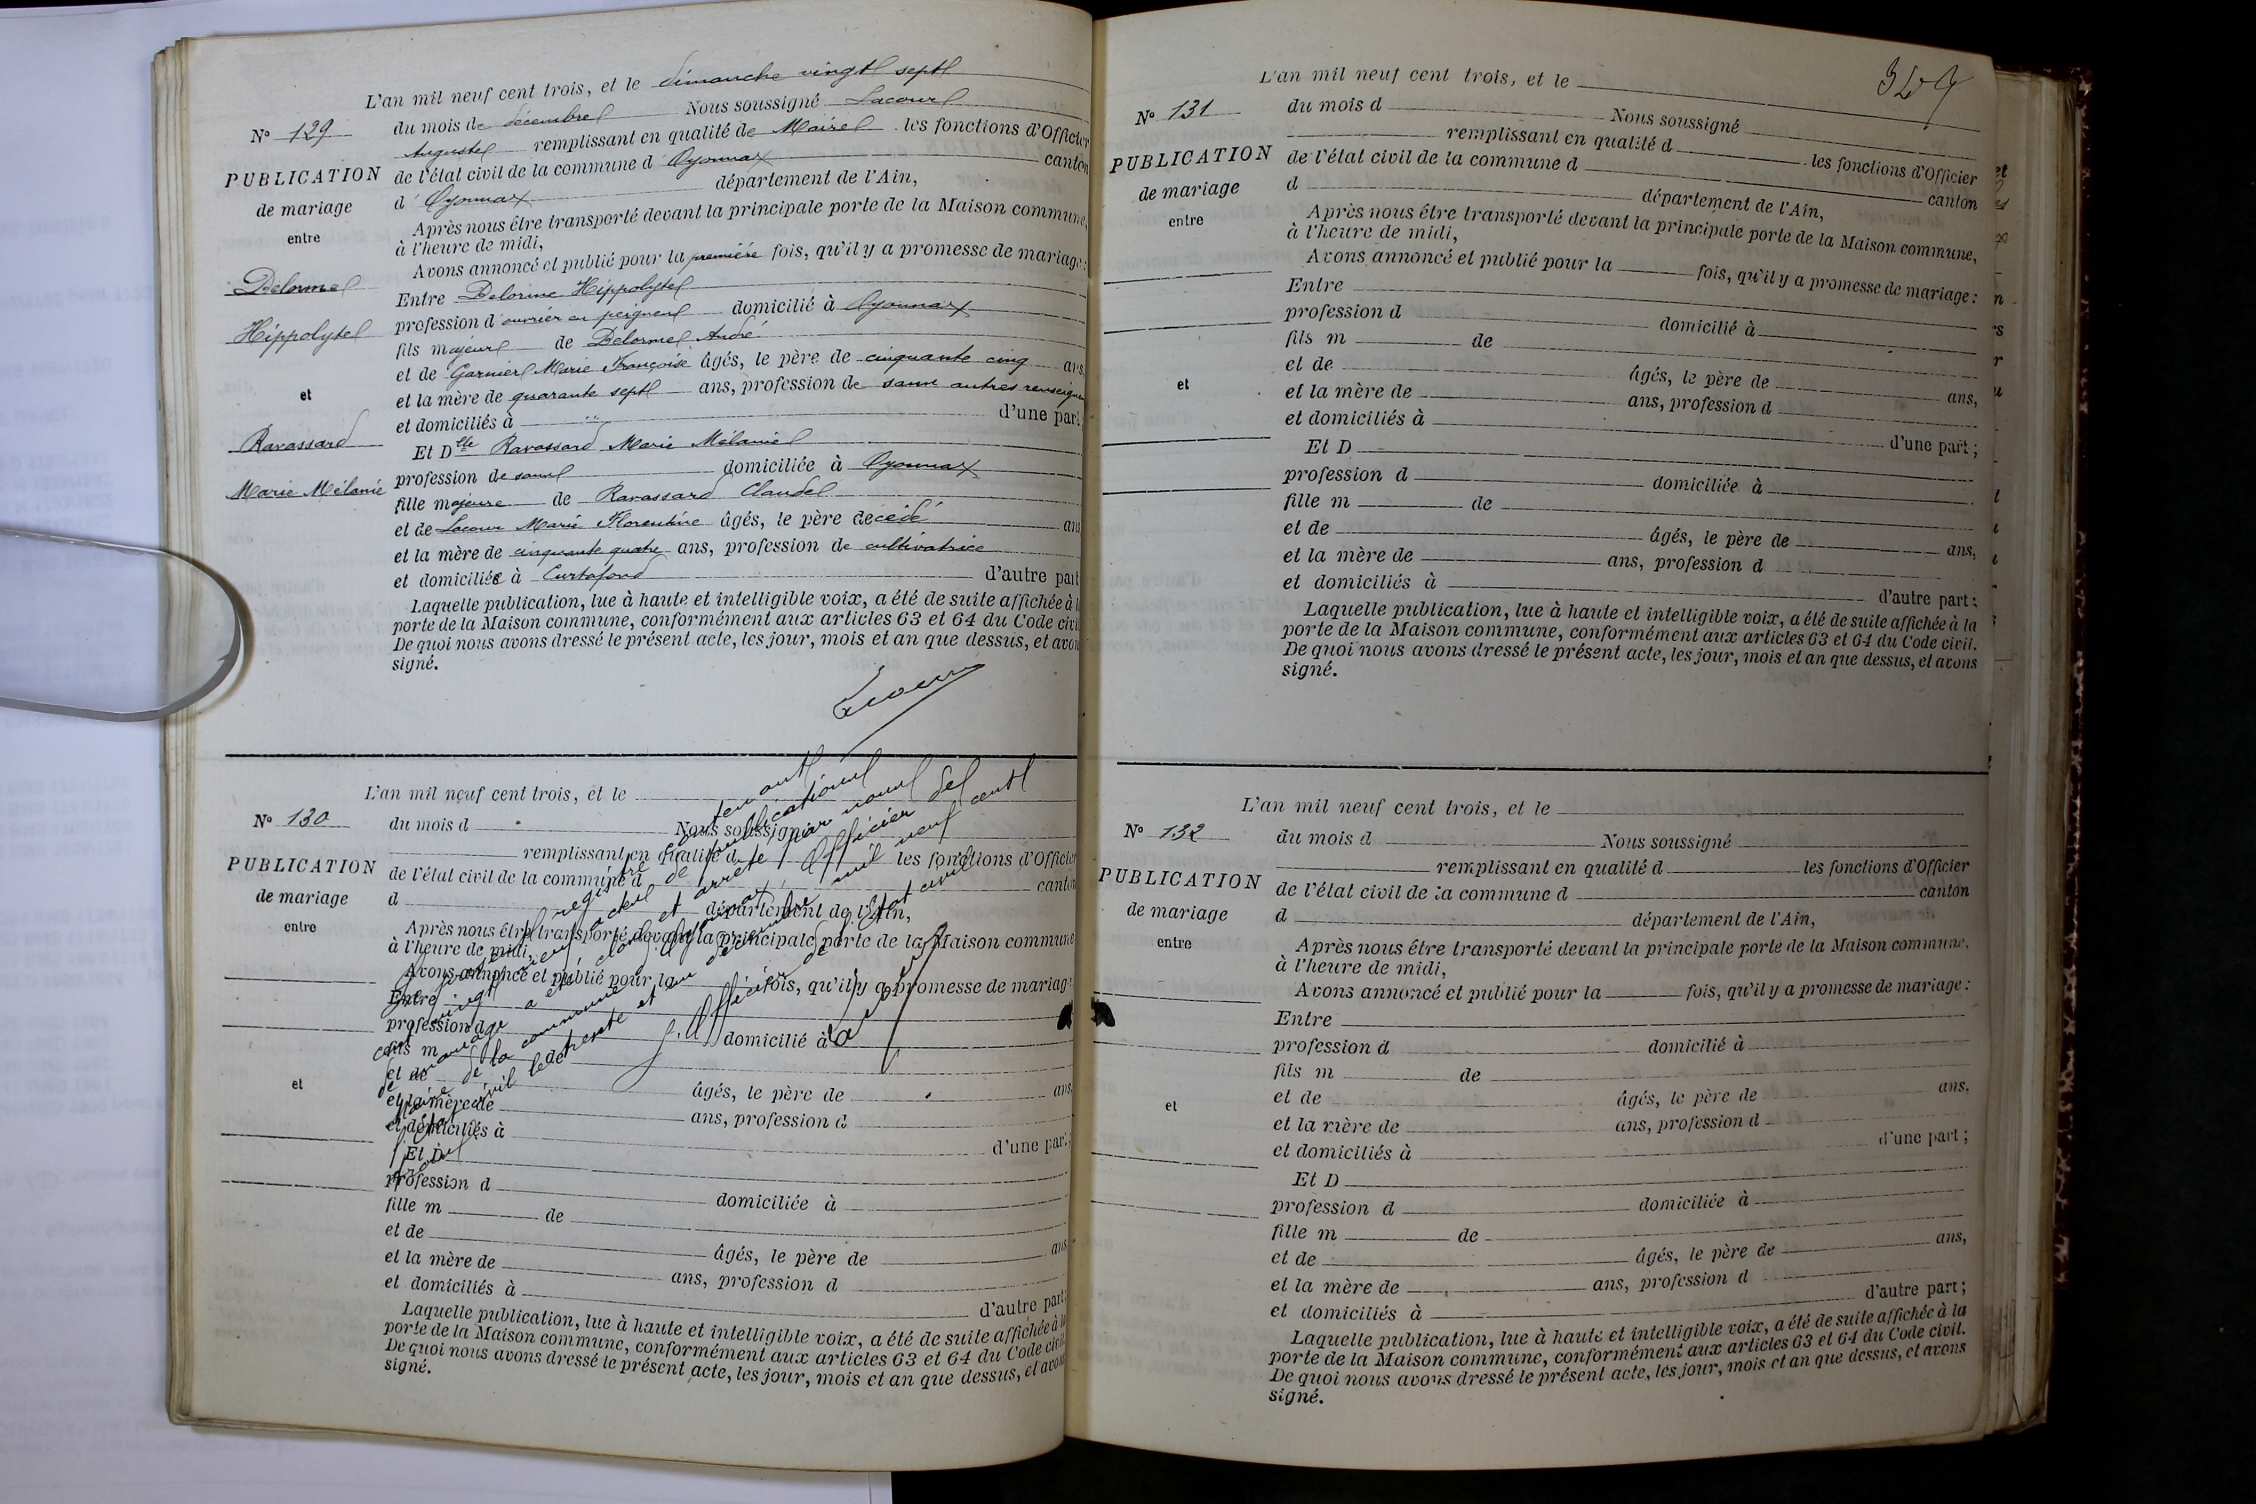 L'an mil neuf cent trois, et le dimanche vingt sept
du mois de décembre Nous soussigné Lacour
Auguste remplissant en qualité de Maire les fonctions d'Officier
de l'état civil de la commune d'Oyonnax canton
d'Oyonnax département de l'Ain,
Après nous être transporté devant la principale porte de la Maison commune,
à l'heure de midi,
Avons annoncé et publié pour la première fois, qu'il y a promesse de mariage:
Entre Delorme Hippolyte
profession d'ouvrier en peignes domicilié à Oyonnax
fils majeur de Delorme André
et de Garnier Marie Françoise âgés, le père de cinquante cinq ans,
et la mère de quarante sept ans, profession de sans autres renseign
et domiciliés à " d'une part
Et Dlle Ravassard Marie Mélanie
profession de sans domiciliée à Oyonnax
fille majeure de Ravassard Claude
et de Lacour Marie Florentine âgés, le père décédé ans
et la mère de cinquante quatre ans, profession de cultivatrice
et domiciliée à Curtafond d'autre part
Laquelle publication, lue à haute et intelligible voix, a été de suite affichée à l
porte de la Maison commune, conformément aux articles 63 et 64 du Code civil
De quoi nous avons dressé le présent acte, les jour, mois et an que dessus, et avon
signé.
Lacour
N° 129
PUBLICATION
de mariage
entre
Delorme
Hippolyte
et
Ravassard
Marie Mélanie
L'an mil neuf cent trois, et le
N° 130
PUBLICATION
de mariage
entre
et
du mois d Nous soussigné
remplissant en qualité d les fonctions d'Officier
de l'état civil de la commune d canton
d département de l'Ain,
Après nous être transporté devant la principale porte de la Maison commune
à l'heure de midi,
Avons annoncé et publié pour la fois, qu'il y a promesse de mariage
Entre
profession d domicilié à
fils m de
et de âgés, le père de ans
et la mère de ans, profession d
et domiciliés à d'une part;
Et D
profession d domiciliée à
fille m de
et de âgés, le père de ans
et la mère de ans, profession d
et domiciliés à d'autre part;
Laquelle publication, lue à haute et intelligible voix, a été de suite affichée à la
porte de la Maison commune, conformément aux articles 63 et 64 du Code civil.
De quoi nous avons dressé le présent acte, les jour, mois et an que dessus, et avons
signé.
registre contenant
cent vingt neuf actes de publications
de mariage a été clos et arrêté par nous
maire de la commune d'Oyonnax, Officier de
l'état civil le trente et un décembre mil neuf cent
trois
L'Officier de l'état civil
Lacour
329
L'an mil neuf cent trois, et le
N° 131
PUBLICATION
de mariage
entre
et
du mois d Nous soussigné
remplissant en qualité d les fonctions d'Officier
de l'état civil de la commune d canton
d département de l'Ain,
Après nous être transporté devant la principale porte de la Maison commune,
à l'heure de midi,
Avons annoncé et publié pour la fois, qu'il y a promesse de mariage:
Entre
profession d domicilié à
fils m de
et de âgés, le père de ans,
et la mère de ans, profession d
et domiciliés à d'une part;
Et D
profession d domiciliée à
fille m de
et de âgés, le père de ans,
et la mère de ans, profession d
et domiciliés à d'autre part;
Laquelle publication, lue à haute et intelligible voix, a été de suite affichée à la
porte de la Maison commune, conformément aux articles 63 et 64 du Code civil.
De quoi nous avons dressé le présent acte, les jour, mois et an que dessus, et avons
signé.
L'an mil neuf cent trois, et le
N° 132
PUBLICATION
de mariage
entre
et
du mois d Nous soussigné
remplissant en qualité d les fonctions d'Officier
de l'état civil de la commune d canton
d département de l'Ain,
Après nous être transporté devant la principale porte de la Maison commune.
à l'heure de midi,
Avons annoncé et publié pour la fois, qu'il y a promesse de mariage:
Entre
profession d domicilié à
fils m de
et de âgés, le père de ans.
et la mère de ans, profession d
et domiciliés à d'une part;
Et D
profession d domiciliée à
fille m de
et de âgés, le père de ans,
et la mère de ans, profession d
et domiciliés à d'autre part;
Laquelle publication, lue à haute et intelligible voix, a été de suite affichée à la
porte de la Maison commune, conformément aux articles 63 et 64 du Code civil.
De quoi nous avons dressé le présent acte, les jour, mois et an que dessus, et avons
signé.